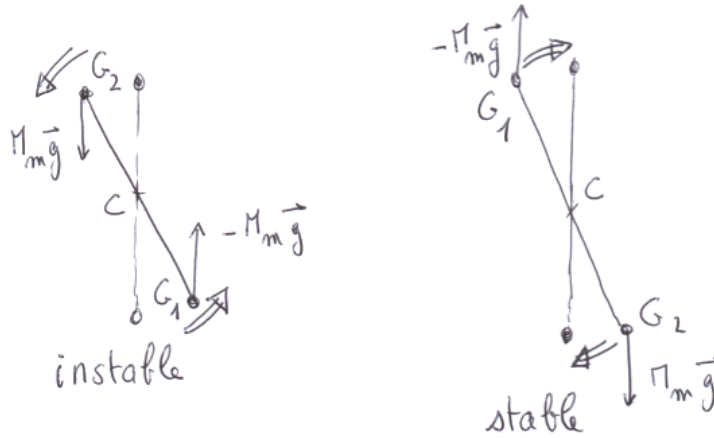 G₂
M_m g⃗
C
-M_m g⃗
G₁
instable
-M_m g⃗
G₁
C
G₂
M_m g⃗
stable